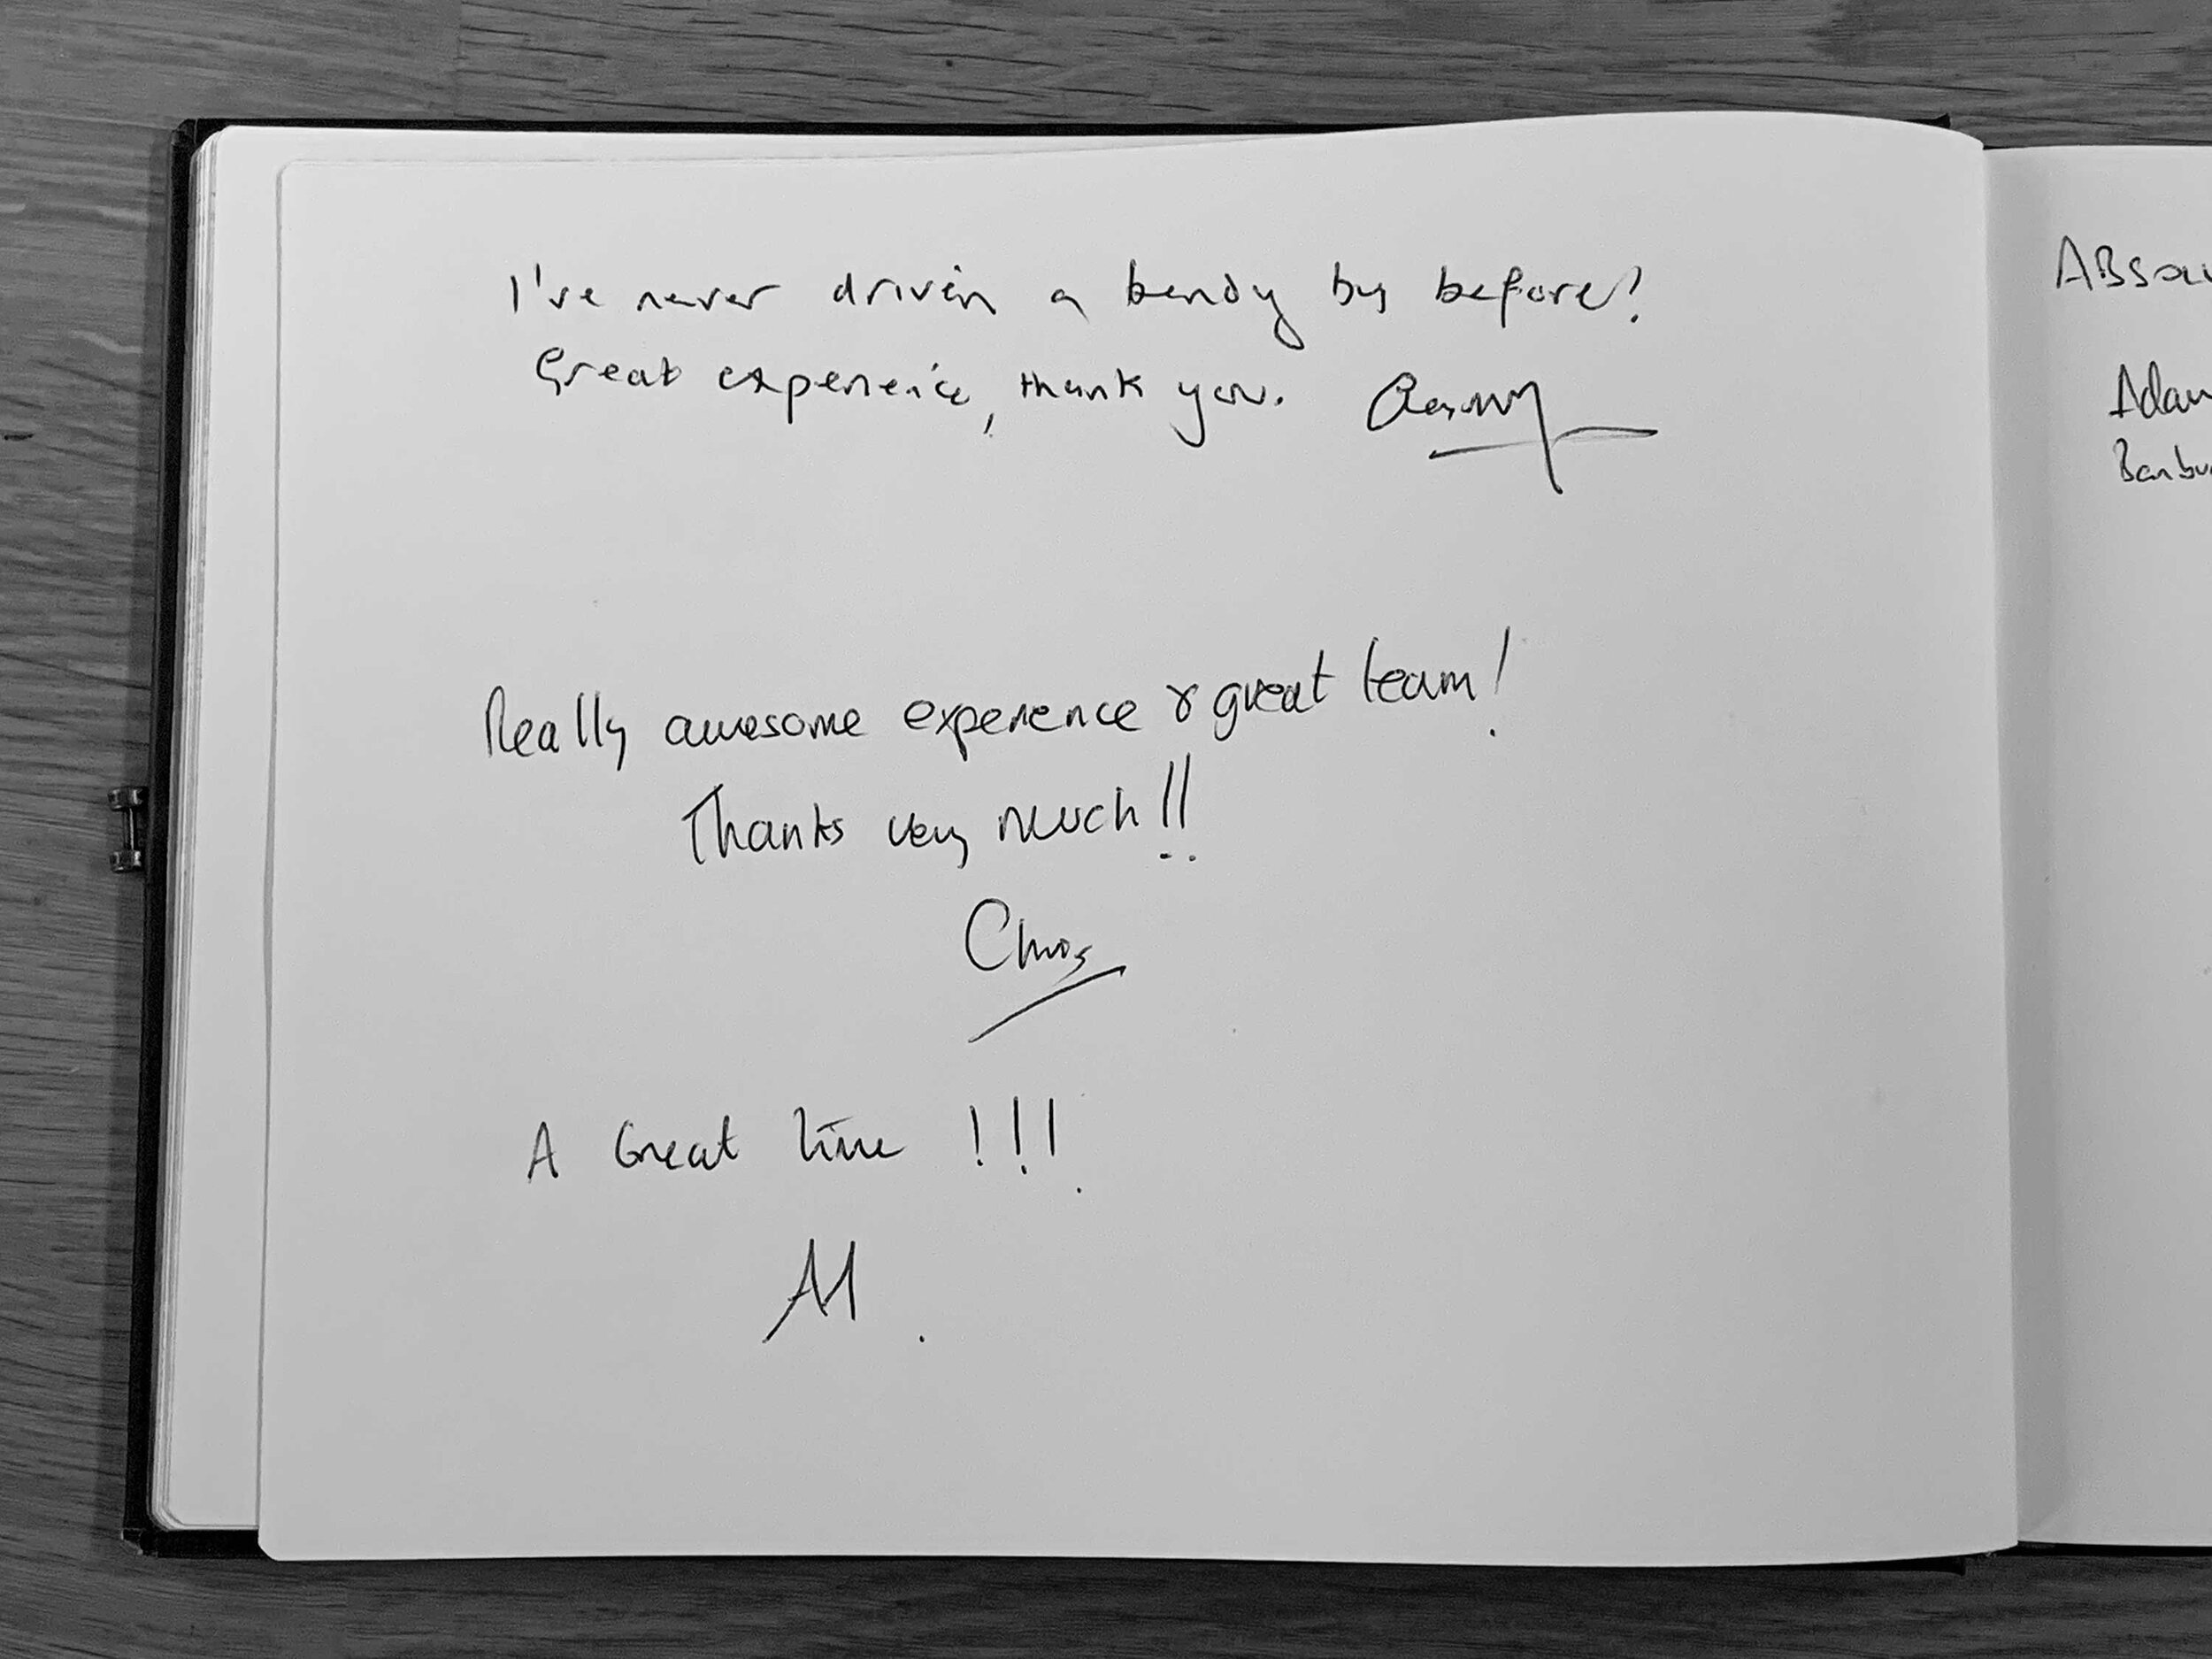 I've never driven a bendy bus before!
Great experience, thank you.
Really awesome experience & great team!
Thanks very much!!
Chris
A Great time !!!
Al.